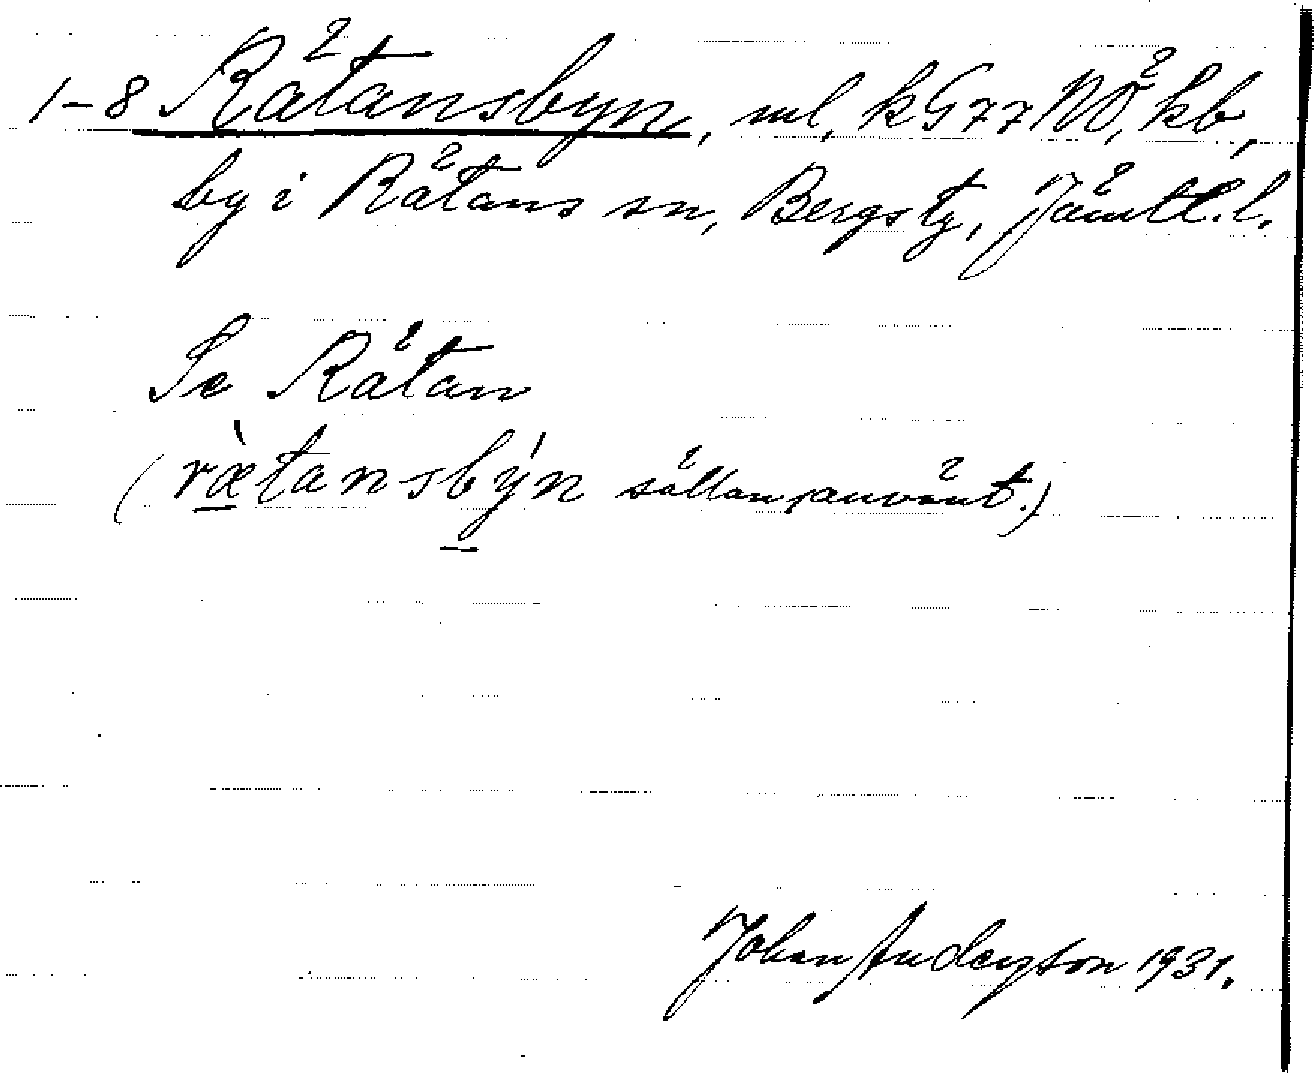 1-8 Rätansbyn, ml, kG77NÖ, kb,
by i Rätans sn, Bergs tg, Jämtl. l.
Se Rätan
(rætansby̍n sällan använt.)
Johan Anderson 1931.